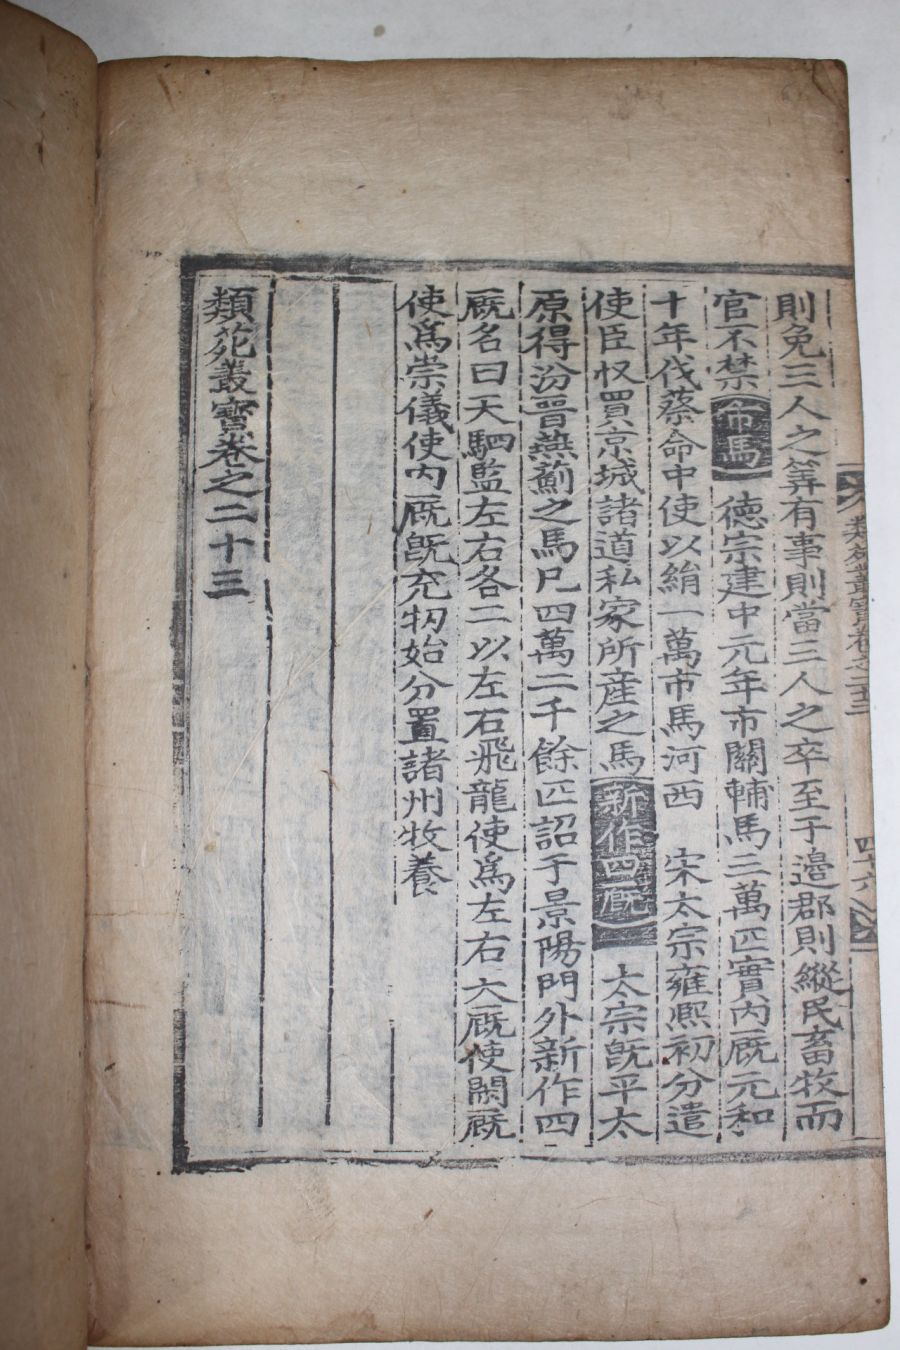 則免三人之筭有事則當三人之卒至于邊郡則縱民畜牧而
官不禁 市馬 德宗建中元年市關輔馬三萬匹實內厩元和
十年伐蔡命中使以絹一萬市馬河西 宋太宗雍熙初分遣
使臣收買京城諸道私家所産之馬 新作四厩 太宗旣平太
原得汾晉燕薊之馬凡四萬二千餘匹詔于景陽門外新作四
厩名曰天駟監左右各二以左右飛龍使爲左右天厩使閑厩
使爲崇儀使內厩旣充牣始分置諸州牧養
類苑叢寶卷之二十三
類苑叢寶卷之二十三
四十六